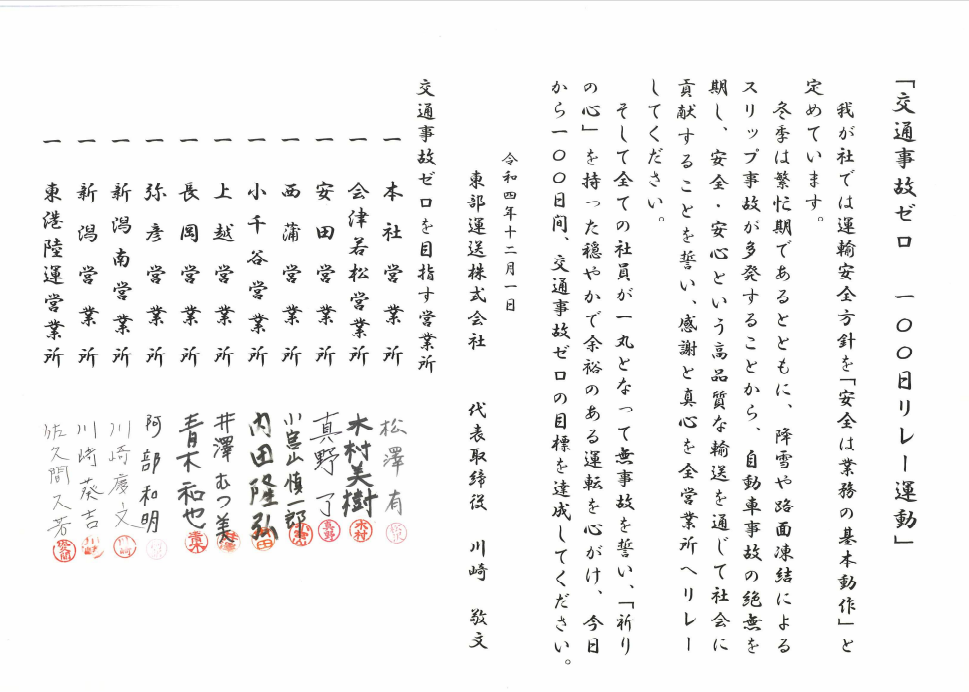 「交通事故ゼロ　一〇〇日リレー運動」
我が社では運輸安全方針を「安全は業務の基本動作」と
定めています。
冬季は繁忙期であるとともに、降雪や路面凍結による
スリップ事故が多発することから、自動車事故の絶無を
期し、安全・安心という高品質な輸送を通じて社会に
貢献することを誓い、感謝と真心を全営業所へリレー
してください。
そして全ての社員が一丸となって無事故を誓い、「祈り
の心」を持った穏やかで余裕のある運転を心がけ、今日
から一〇〇日間、交通事故ゼロの目標を達成してください。
令和四年十二月一日
東部運送株式会社　代表取締役　川崎　敬文
交通事故ゼロを目指す営業所
一　本社営業所　松澤有
一　会津若松営業所　木村美樹　木村
一　安田営業所　真野了　真野
一　西蒲営業所　小宮山慎一郎
一　小千谷営業所　内田隆弘　内田
一　上越営業所　井澤むつ美　井澤
一　長岡営業所　青木和也　青木
一　弥彦営業所　阿部和明
一　新潟南営業所　川崎慶文　川崎
一　新潟営業所　川崎葵吉　川崎
一　東港陸運営業所　佐久間久芳　佐久間